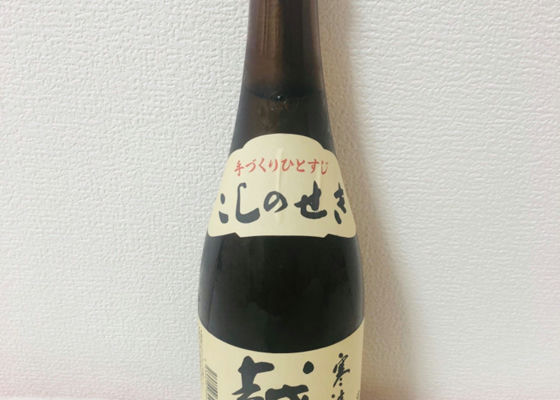 手づくりひとすじ
こしのせき
寒
越